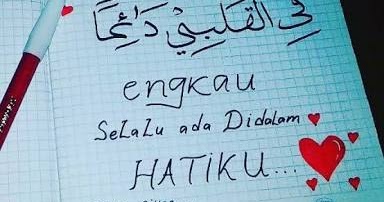 فِي الْقَلْبِيْ دَائِمًا
engkau
SeLaLu ada DidaLam
HATiKU...